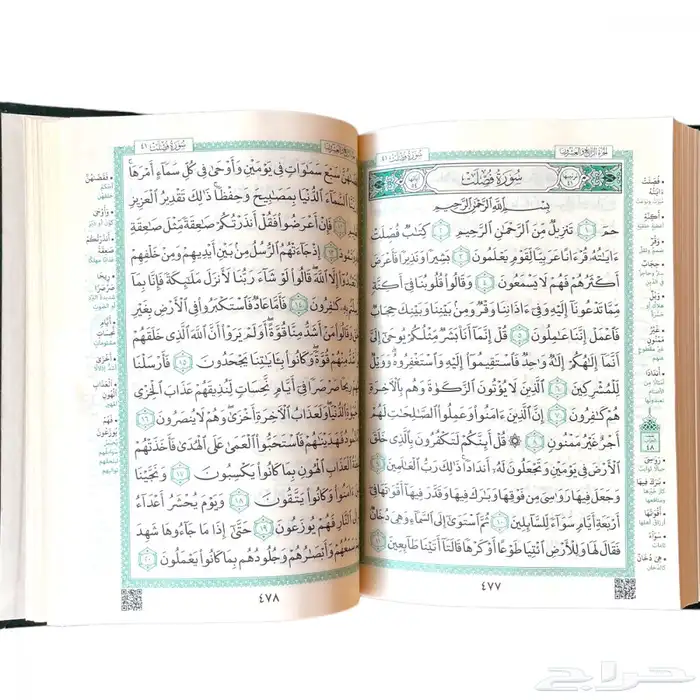 الجزء الرابع والعشرون سُورَةُ فُصِّلَتْ ٤١
سُورَةُ فُصِّلَتْ
بِسْمِ ٱللَّهِ ٱلرَّحْمَٰنِ ٱلرَّحِيمِ
حمٓ ١ تَنزِيلٌ مِّنَ ٱلرَّحْمَٰنِ ٱلرَّحِيمِ ٢ كِتَٰبٌ فُصِّلَتْ
ءَايَٰتُهُۥ قُرْءَانًا عَرَبِيًّا لِّقَوْمٍ يَعْلَمُونَ ٣ بَشِيرًا وَنَذِيرًا فَأَعْرَضَ
أَكْثَرُهُمْ فَهُمْ لَا يَسْمَعُونَ ٤ وَقَالُوا۟ قُلُوبُنَا فِىٓ أَكِنَّةٍ
مِّمَّا تَدْعُونَآ إِلَيْهِ وَفِىٓ ءَاذَانِنَا وَقْرٌ وَمِنۢ بَيْنِنَا وَبَيْنِكَ حِجَابٌ
فَٱعْمَلْ إِنَّنَا عَٰمِلُونَ ٥ قُلْ إِنَّمَآ أَنَا۠ بَشَرٌ مِّثْلُكُمْ يُوحَىٰٓ إِلَىَّ
أَنَّمَآ إِلَٰهُكُمْ إِلَٰهٌ وَٰحِدٌ فَٱسْتَقِيمُوٓا۟ إِلَيْهِ وَٱسْتَغْفِرُوهُ وَوَيْلٌ
لِّلْمُشْرِكِينَ ٦ ٱلَّذِينَ لَا يُؤْتُونَ ٱلزَّكَوٰةَ وَهُم بِٱلْءَاخِرَةِ
هُمْ كَٰفِرُونَ ٧ إِنَّ ٱلَّذِينَ ءَامَنُوا۟ وَعَمِلُوا۟ ٱلصَّٰلِحَٰتِ لَهُمْ
أَجْرٌ غَيْرُ مَمْنُونٍ ٨ ۞ قُلْ أَئِنَّكُمْ لَتَكْفُرُونَ بِٱلَّذِى خَلَقَ
ٱلْأَرْضَ فِى يَوْمَيْنِ وَتَجْعَلُونَ لَهُۥٓ أَندَادًا ذَٰلِكَ رَبُّ ٱلْعَٰلَمِينَ ٩
وَجَعَلَ فِيهَا رَوَٰسِىَ مِن فَوْقِهَا وَبَٰرَكَ فِيهَا وَقَدَّرَ فِيهَآ أَقْوَٰتَهَا فِىٓ
أَرْبَعَةِ أَيَّامٍ سَوَآءً لِّلسَّآئِلِينَ ١٠ ثُمَّ ٱسْتَوَىٰٓ إِلَى ٱلسَّمَآءِ وَهِىَ دُخَانٌ
فَقَالَ لَهَا وَلِلْأَرْضِ ٱئْتِيَا طَوْعًا أَوْ كَرْهًا قَالَتَآ أَتَيْنَا طَآئِعِينَ ١١
٤٧٧
سُورَةُ فُصِّلَتْ ٤١
سَبْعَ سَمَٰوَاتٍ فِى يَوْمَيْنِ وَأَوْحَىٰ فِى كُلِّ سَمَآءٍ أَمْرَهَا
ٱلسَّمَآءَ ٱلدُّنْيَا بِمَصَٰبِيحَ وَحِفْظًا ذَٰلِكَ تَقْدِيرُ ٱلْعَزِيزِ
فَإِنْ أَعْرَضُوا۟ فَقُلْ أَنذَرْتُكُمْ صَٰعِقَةً مِّثْلَ صَٰعِقَةِ
إِذْ جَآءَتْهُمُ ٱلرُّسُلُ مِنۢ بَيْنِ أَيْدِيهِمْ وَمِنْ خَلْفِهِمْ
إِلَّا ٱللَّهَ قَالُوا۟ لَوْ شَآءَ رَبُّنَا لَأَنزَلَ مَلَٰٓئِكَةً فَإِنَّا بِمَآ
كَٰفِرُونَ ١٤ فَأَمَّا عَادٌ فَٱسْتَكْبَرُوا۟ فِى ٱلْأَرْضِ بِغَيْرِ
وَقَالُوا۟ مَنْ أَشَدُّ مِنَّا قُوَّةً أَوَلَمْ يَرَوْا۟ أَنَّ ٱللَّهَ ٱلَّذِى خَلَقَهُمْ
مِنْهُمْ قُوَّةً وَكَانُوا۟ بِـَٔايَٰتِنَا يَجْحَدُونَ ١٥ فَأَرْسَلْنَا
رِيحًا صَرْصَرًا فِىٓ أَيَّامٍ نَّحِسَاتٍ لِّنُذِيقَهُمْ عَذَابَ ٱلْخِزْىِ
ٱلدُّنْيَا وَلَعَذَابُ ٱلْءَاخِرَةِ أَخْزَىٰ وَهُمْ لَا يُنصَرُونَ ١٦
فَهَدَيْنَٰهُمْ فَٱسْتَحَبُّوا۟ ٱلْعَمَىٰ عَلَى ٱلْهُدَىٰ فَأَخَذَتْهُمْ
ٱلْعَذَابِ ٱلْهُونِ بِمَا كَانُوا۟ يَكْسِبُونَ ١٧ وَنَجَّيْنَا
ءَامَنُوا۟ وَكَانُوا۟ يَتَّقُونَ ١٨ وَيَوْمَ يُحْشَرُ أَعْدَآءُ
ٱلنَّارِ فَهُمْ يُوزَعُونَ ١٩ حَتَّىٰٓ إِذَا مَا جَآءُوهَا شَهِدَ
سَمْعُهُمْ وَأَبْصَٰرُهُمْ وَجُلُودُهُم بِمَا كَانُوا۟ يَعْمَلُونَ ٢٠
٤٧٨
حراج